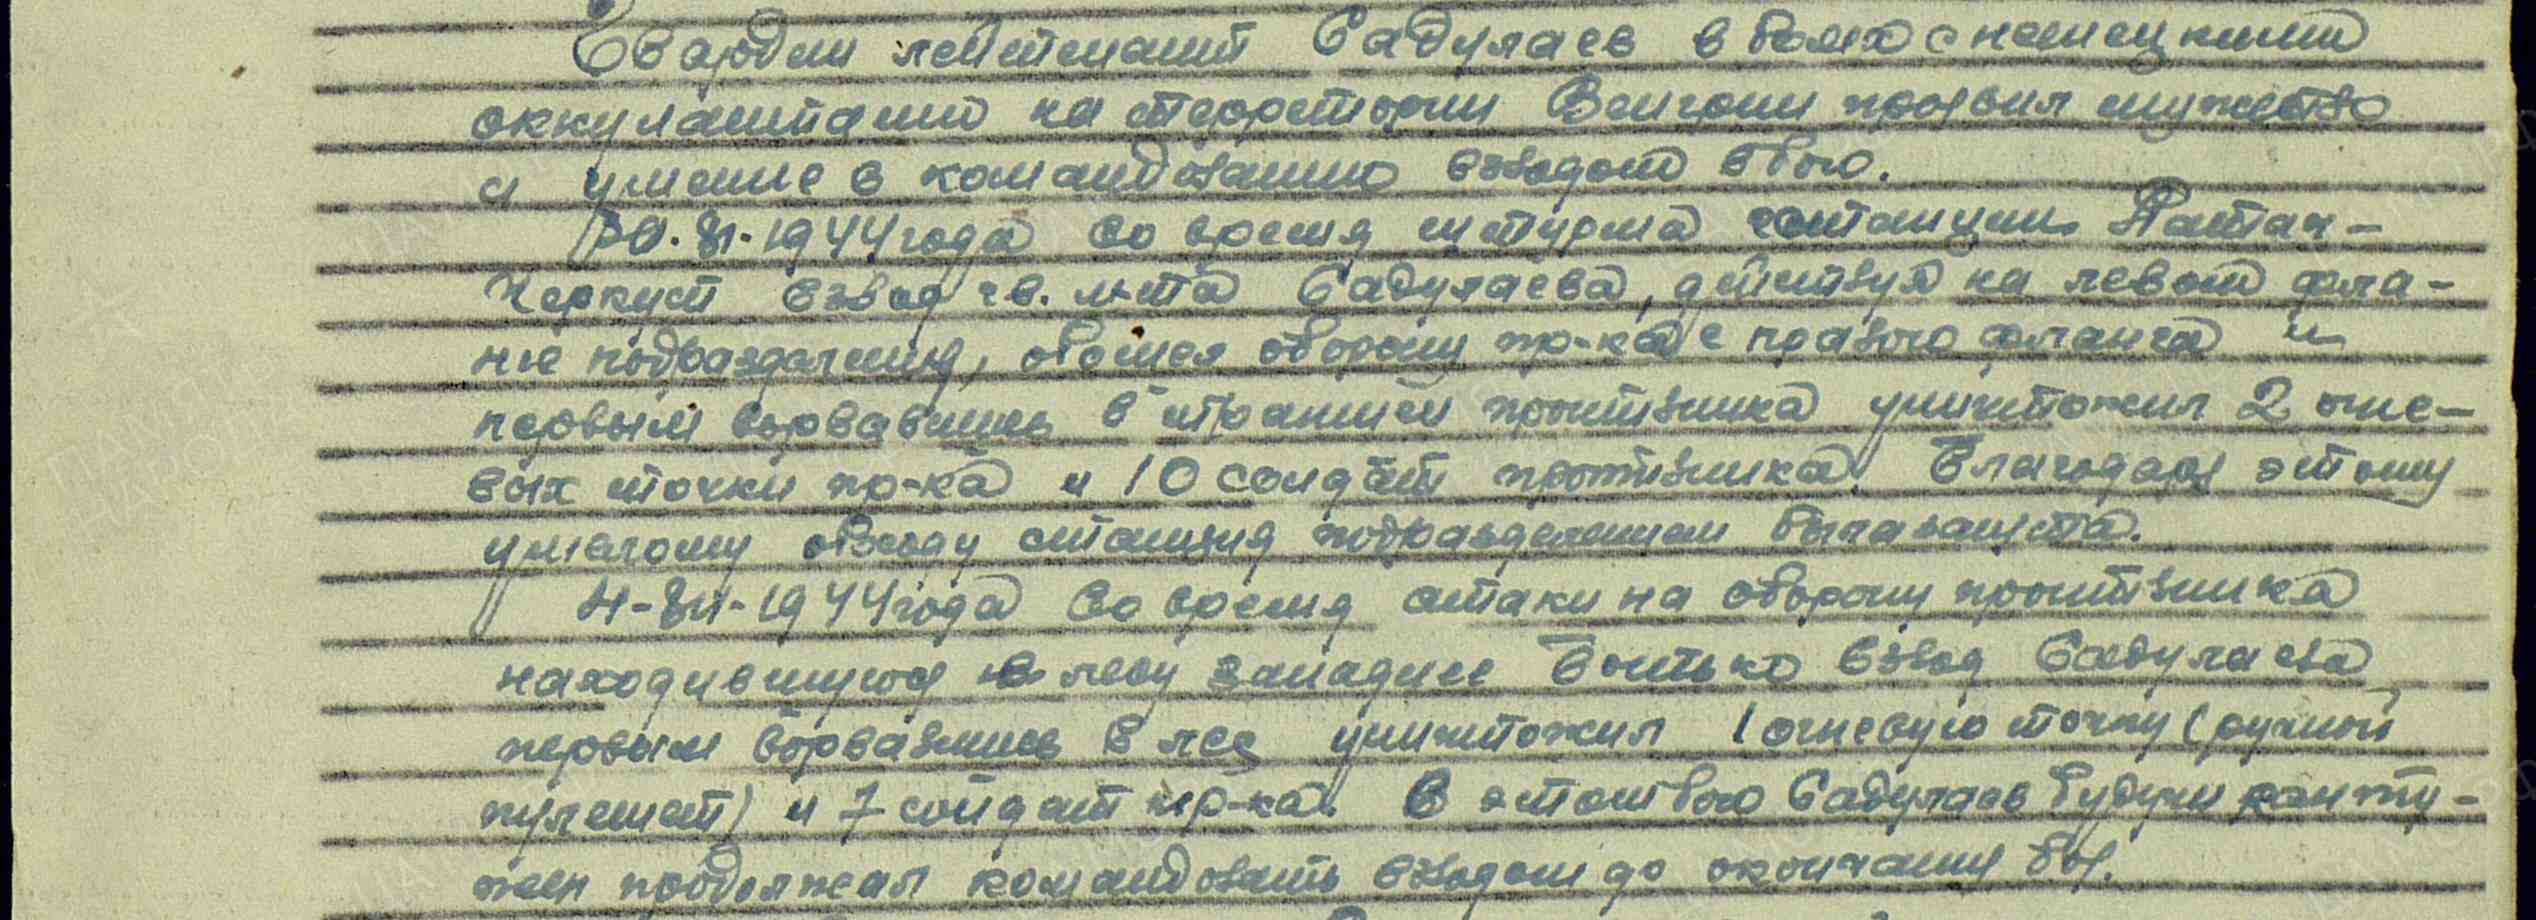 Гвардии лейтенант Садулаев в боях с немецкими
оккупантами на территории Венгрии проявил мужество
и умение в командованию взводом в бою.
30.XI.1944 года во время штурма станции Патан-
Черкут взвод гв. л-та Садулаева, действуя на левом фла-
нге подразделения, обошел оборону пр-ка с правого фланга и
первым ворвавшись в траншеи противника уничтожил 2 огне-
вых точки пр-ка и 10 солдат противника. Благодаря этому
умелому обходу станция подразделением была занята.
4-XII-1944 года во время атаки на оборону противника
находившуюся в лесу западнее взвод Садулаева
первым ворвавшись в лес уничтожил 1 огневую точку (ручной
пулемет) и 7 солдат пр-ка. В этом бою Садулаев будучи конту-
жен продолжал командовать взводом до окончания боя.